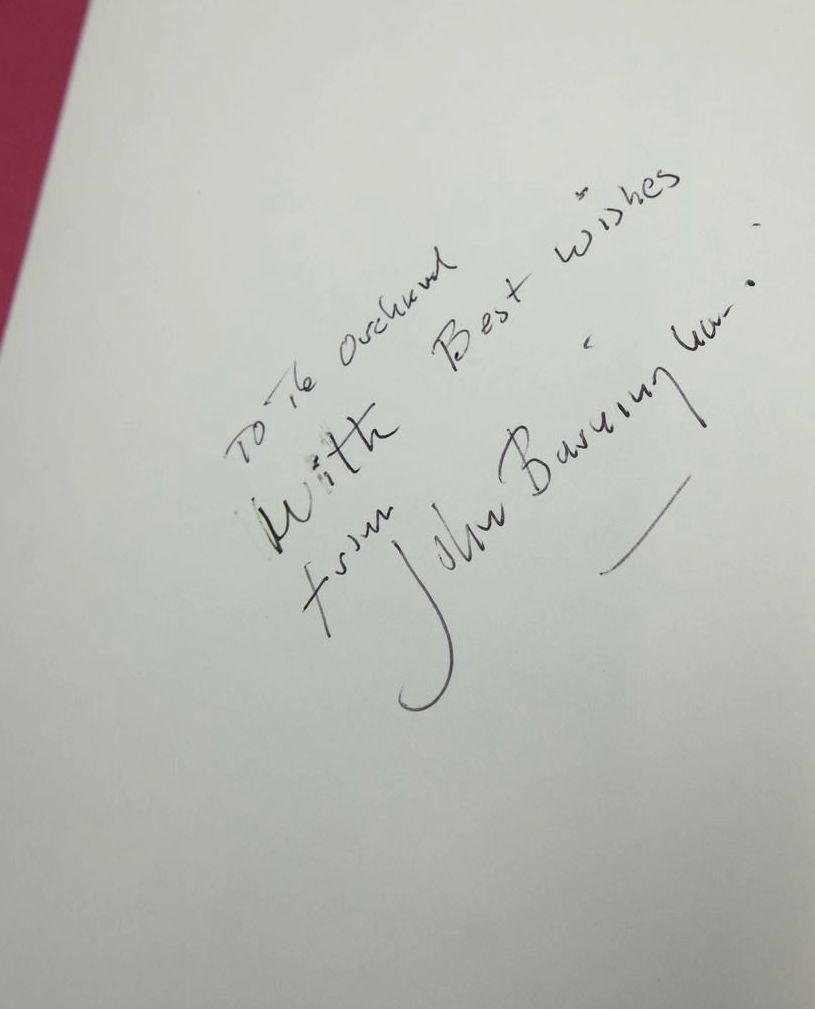 To The Orchard
With Best Wishes
from John Burningham.